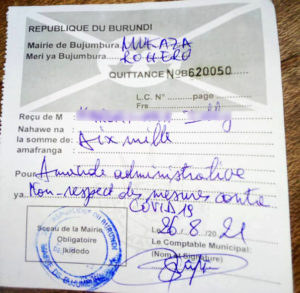 REPUBLIQUE DU BURUNDI
Mairie de Bujumbura MUKAZA
Meri ya Bujumbura ROHERO
QUITTANCE NoB620050
L.C. N° page
Frs
Reçu de M
Nahawe na
la somme de: Dix mille
amafranga
Pour Amende administrative
ya Non-respect des mesures contre
COVID19
Sceau de la Mairie
Obligatoire
Ikidodo
REPUBLIQUE DU BURUNDI
Le 26.8./20 21
Le Comptable Municipal
(Nom et Signature)